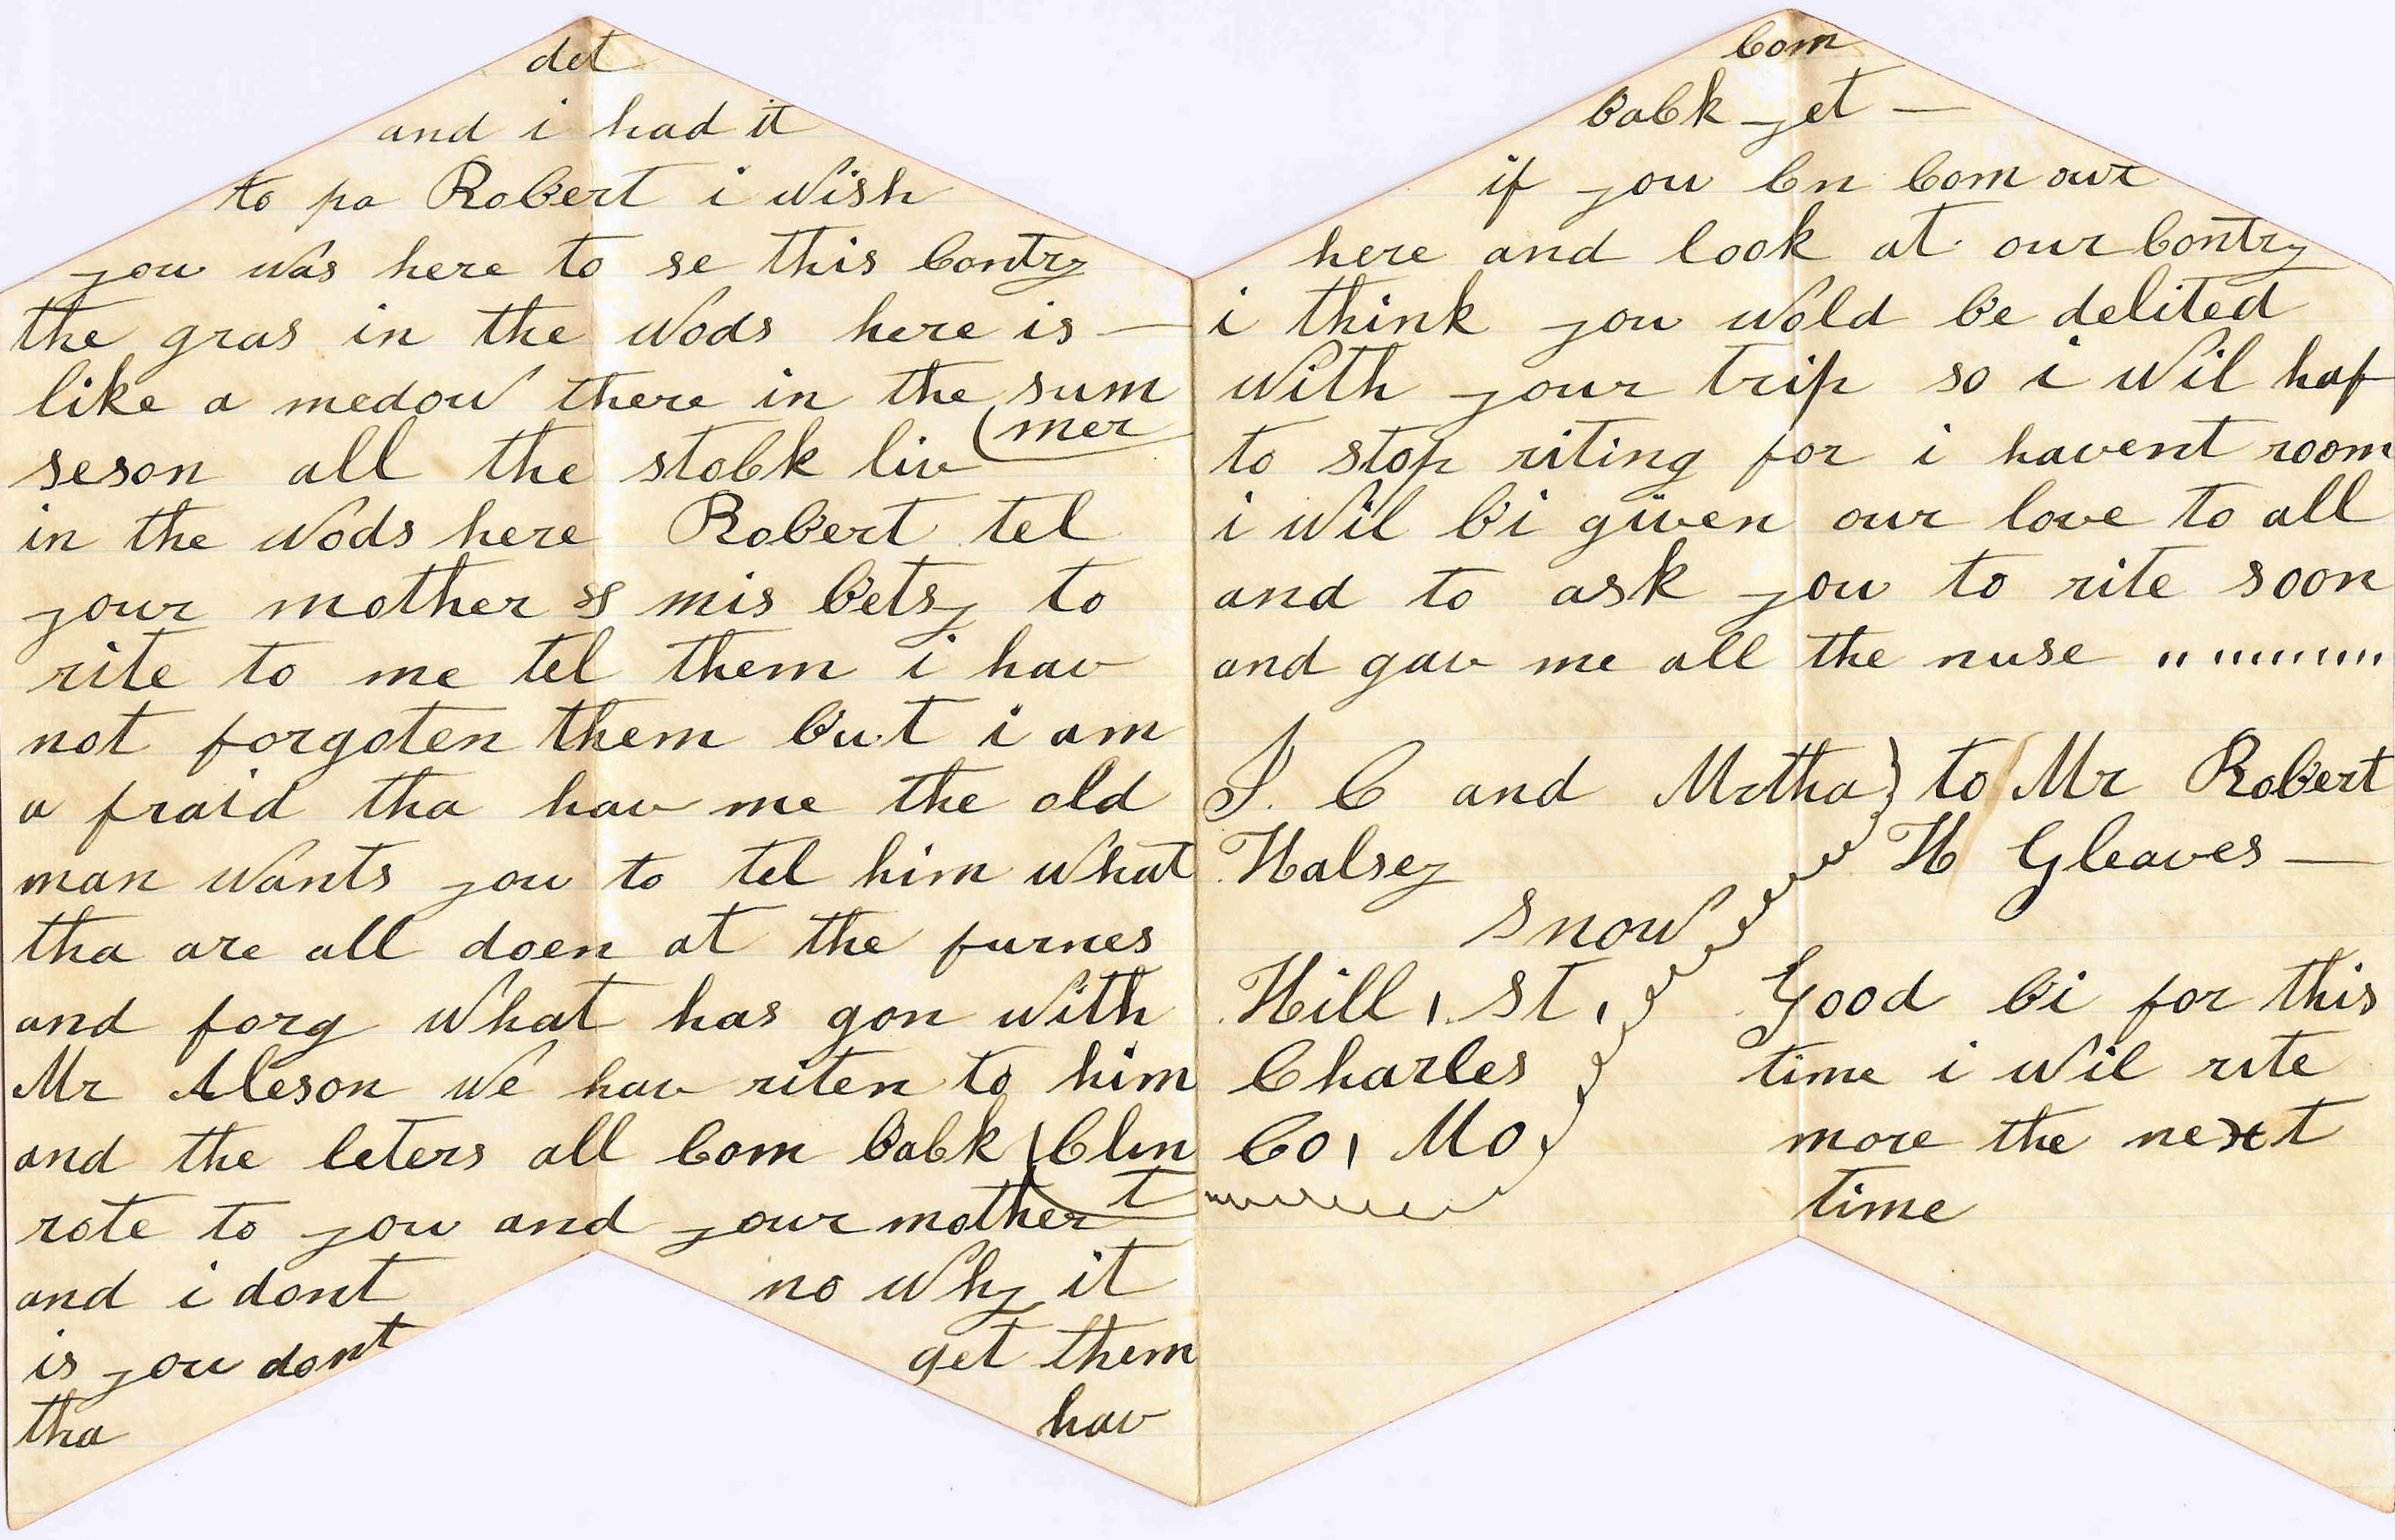 det
and i had it
to pa Robert i wish
you was here to se this Contry
the gras in the Wods here is —
like a medow there in the sum
(mer
seson all the stock liv
in the Wods here Robert tel
your mother & mis betsy to
rite to me tel them i hav
not forgoten them but i am
a fraid tha hav me the old
man wants you to tel him what
tha are all doen at the furnes
and forg what has gon with
Mr Aleson we hav riten to him
and the leters all Com back (Clin
t
rote to you and your mother
and i dont no why it
is you dont get them
tha hav
Com
back yet —
if you Cn Com out
here and look at our Contry
i think you wold be delited
with your trip so i wil haf
to stop riting for i havent room
i wil bi given our love to all
and to ask you to rite soon
and gav me all the nuse ,,,,,,,,,,,,
C and Mrtha } to Mr Robert
Halsey H Gleaves —
Snow
Hill, St,
Charles
Co, Mo,
Good bi for this
time i wil rite
more the next
time